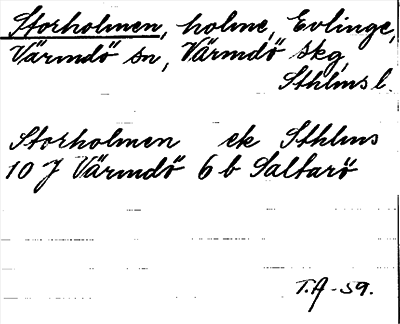 Storholmen, holme, Evlinge,
Värmdö sn, Värmdö skg,
Sthlms l.
Storholmen ek Sthlms
10 J Värmdö 6 b Saltarö
T.A-59.